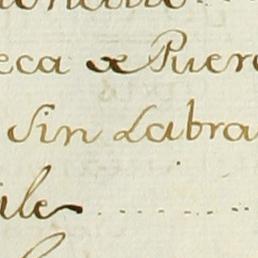 eca de Puer
Sin Labra
ile ..........